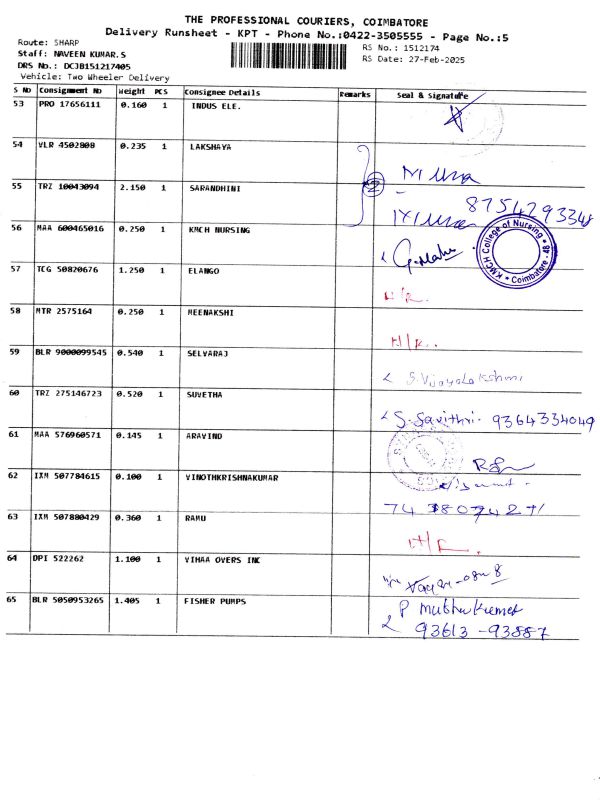 THE PROFESSIONAL COURIERS, COIMBATORE
Delivery Runsheet - KPT - Phone No.:0422-3505555 - Page No.:5
Route: SHARP
RS No.: 1512174
Staff: NAVEEN KUMAR.S
RS Date: 27-Feb-2025
DRS No.: DCJB151217405
Vehicle: Two Wheeler Delivery
S NO Consignment No Weight PCS Consignee Details Remarks Seal & signature
53 PRO 17656111 0.160 1 INDUS ELE.
54 VLR 4502808 0.235 1 LAKSHAYA
2
55 TRZ 10043094 2.150 1 SARANDHINI
8754293348
56 MAA 600465016 0.250 1 KMCH NURSING
KMCH College of Nursing Coimbatore - 48
57 TCG 50820676 1.250 1 ELANGO
H/R.
58 MTR 2575164 0.250 1 MEENAKSHI
H/R.
59 BLR 9000099545 0.540 1 SELVARAJ
S.Vijayalakshmi
60 TRZ 275146723 0.520 1 SUVETHA
S.Savithri. 9364334049
61 MAA 576960571 0.145 1 ARAVIND
62 IXM 507784615 0.100 1 VINOTHKRISHNAKUMAR
63 IXM 507880429 0.360 1 RAMU
H/R.
64 DPI 522262 1.100 1 VIHAA OVERS INC
65 BLR 5050953265 1.405 1 FISHER PUMPS
P muthukumar
93613-93887